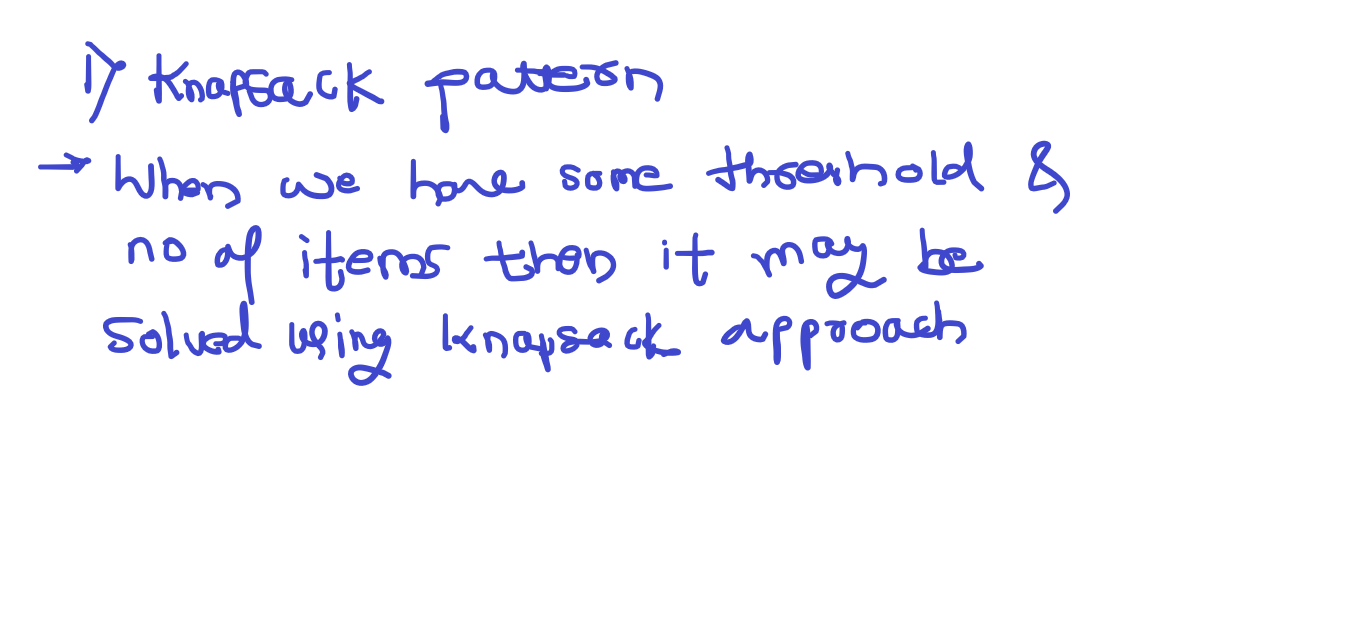 1) Knapsack pattern
→ When we have some threshold &
no of items then it may be
solved using knapsack approach